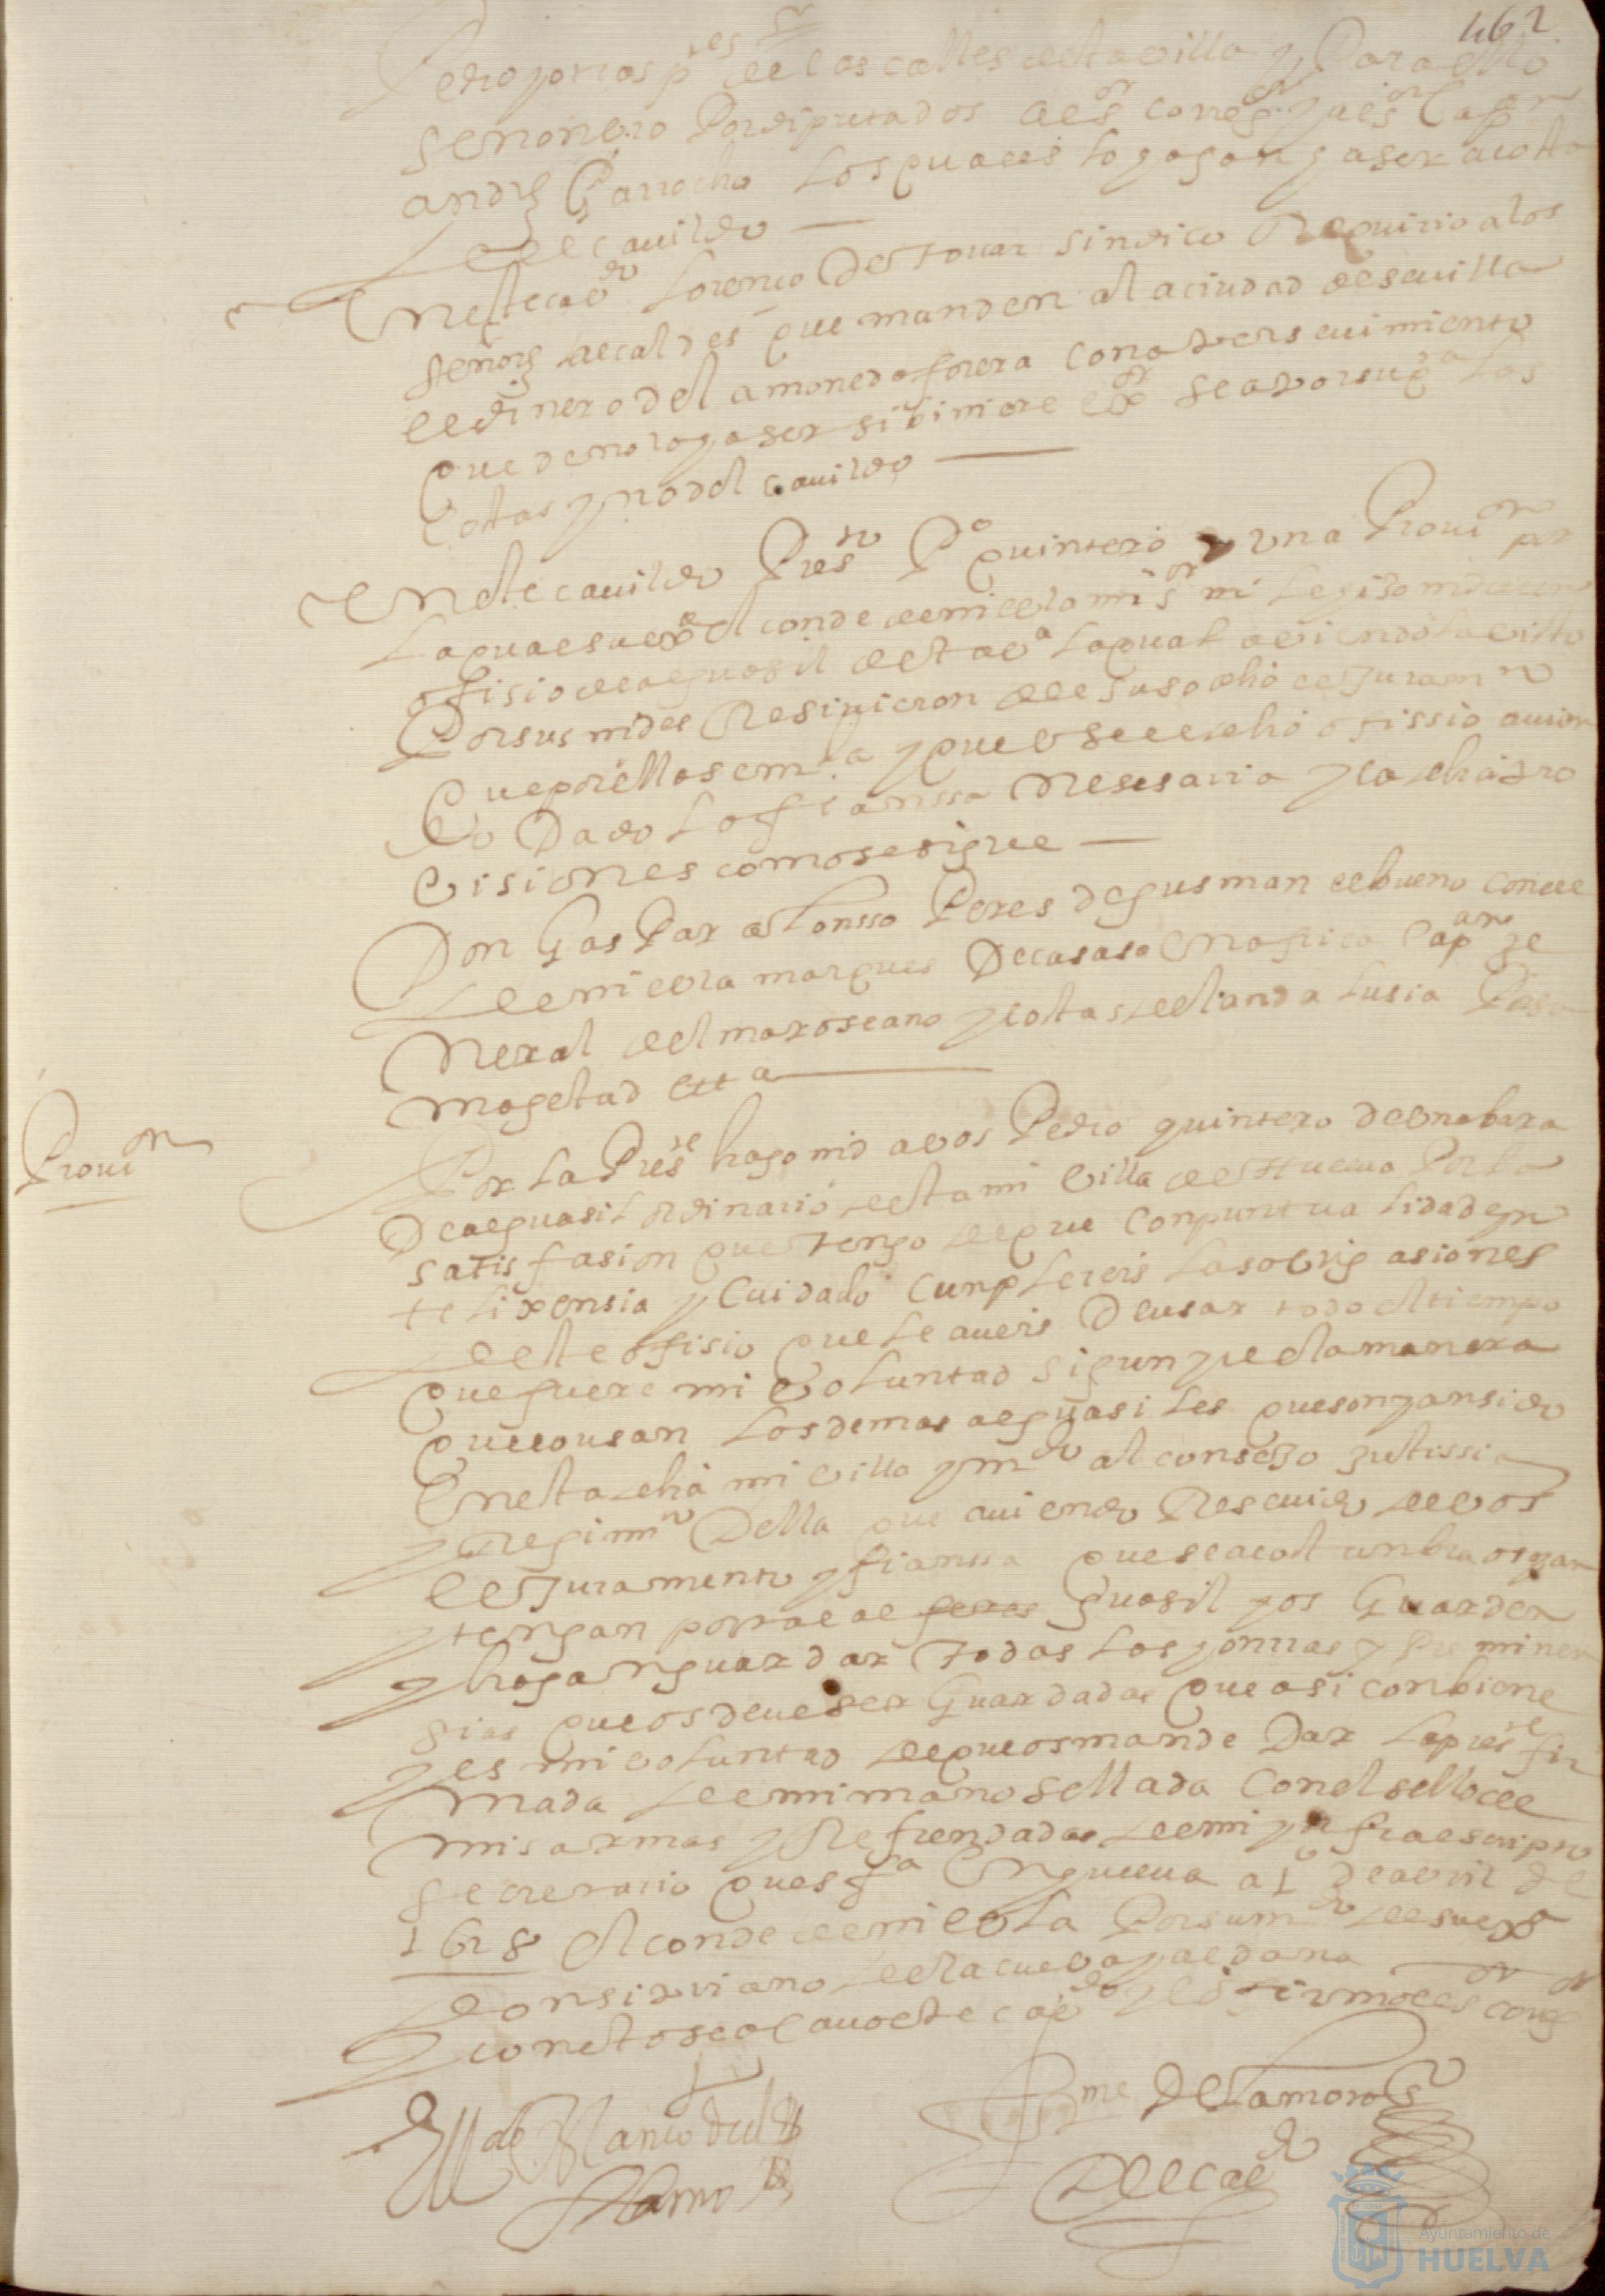 462
de las calles desta villa y Para ello
se nonbro Por diputados al sr correg.or y al sr Capn
andrs Garrocho los quales lo yagan y aser a costa
del cauildo —
En este cavdo Lorenço de touar sindico Requirio a los
señors alcaldes que manden a la ciudad de seuilla
el dinero de la moneda forera con apersevimiento
que de no lo yaser si biniere exor sea por su qta las
costas y no del cauildo —
En este cauildo Presto Po quintero una Provion por
la qual su exa el conde de niebla mi sr
offisio de alguasil desta va la qual aviendola visto
Por sus mdes Resivieron del susodho el juramto
que por ellos y que use el dho offissio avien
do Dado la fianssa Nesesaria y la dha pro
visiones como se sigue —
Don Gaspar alonsso Peres de gusman el bueno conde
de niebla marques De casasa en africa Capan ge
neral del mar oseano y costas del andalusia Por su
magestad etta —
Provion
Por la Preste hago md a vos Pedro quintero de una bara
De alguasil ordinario desta mi villa de Huelva Por la
satisfasion que tengo de que con puntualidad yn
telixensia y Cuidado cunplireis las obligasiones
deste offisio que le aveis De usar todo el tiempo
que fuere mi voluntad sigun y de la manera
que lo usan los demas alguasiles que son y an sido
En esta dha mi villa y mdo al consejo justissia
y regimto Della que aviendo Resevido de vos
el juramento y fianssa que se acostunbra os yan
y tengan por tal alguasil y os Guarden
y hagan guardar todas las yonrras y preminen
sias que os deven ser Guardadas que asi conbiene
y es mi voluntad de que os mande Dar la preste fir
mada de mi mano sellada con el sello de
mis armas y Refrendada de mi ynfraescripto
secretario ques fa En guelva a 1o de abril de
1628 El conde de niebla Por su mdo de su exa
y con esto se acavo este cavdo y lo firmo el sr corregor
De la mora
Del cavdo
Ayuntamiento de
HUELVA